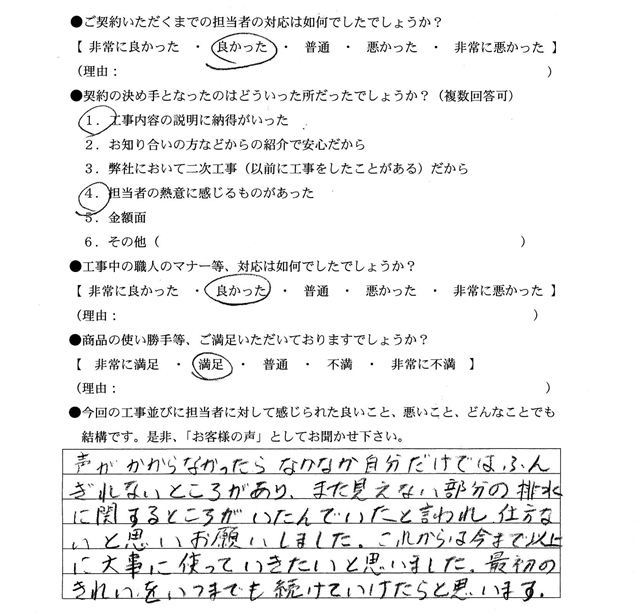 ●ご契約いただくまでの担当者の対応は如何でしたでしょうか？
【 非常に良かった ・ 良かった ・ 普通 ・ 悪かった ・ 非常に悪かった 】
（理由： ）
●契約の決め手となったのはどういった所だったでしょうか？（複数回答可）
1．工事内容の説明に納得がいった
2．お知り合いの方などからの紹介で安心だから
3．弊社において二次工事（以前に工事をしたことがある）だから
4．担当者の熱意に感じるものがあった
5．金額面
6．その他（ ）
●工事中の職人のマナー等、対応は如何でしたでしょうか？
【 非常に良かった ・ 良かった ・ 普通 ・ 悪かった ・ 非常に悪かった 】
（理由： ）
●商品の使い勝手等、ご満足いただいておりますでしょうか？
【 非常に満足 ・ 満足 ・ 普通 ・ 不満 ・ 非常に不満 】
（理由： ）
●今回の工事並びに担当者に対して感じられた良いこと、悪いこと、どんなことでも
結構です。是非、「お客様の声」としてお聞かせ下さい。
声がかからなかったらなかなか自分だけではふん
ぎれないところがあり、また見えない部分の排水
に関するところがいたんでいたと言われ、仕方な
いと思いお願いしました。これからは今まで以上
に大事に使っていきたいと思いました。最初の
きれいをいつまでも続けていけたらと思います。